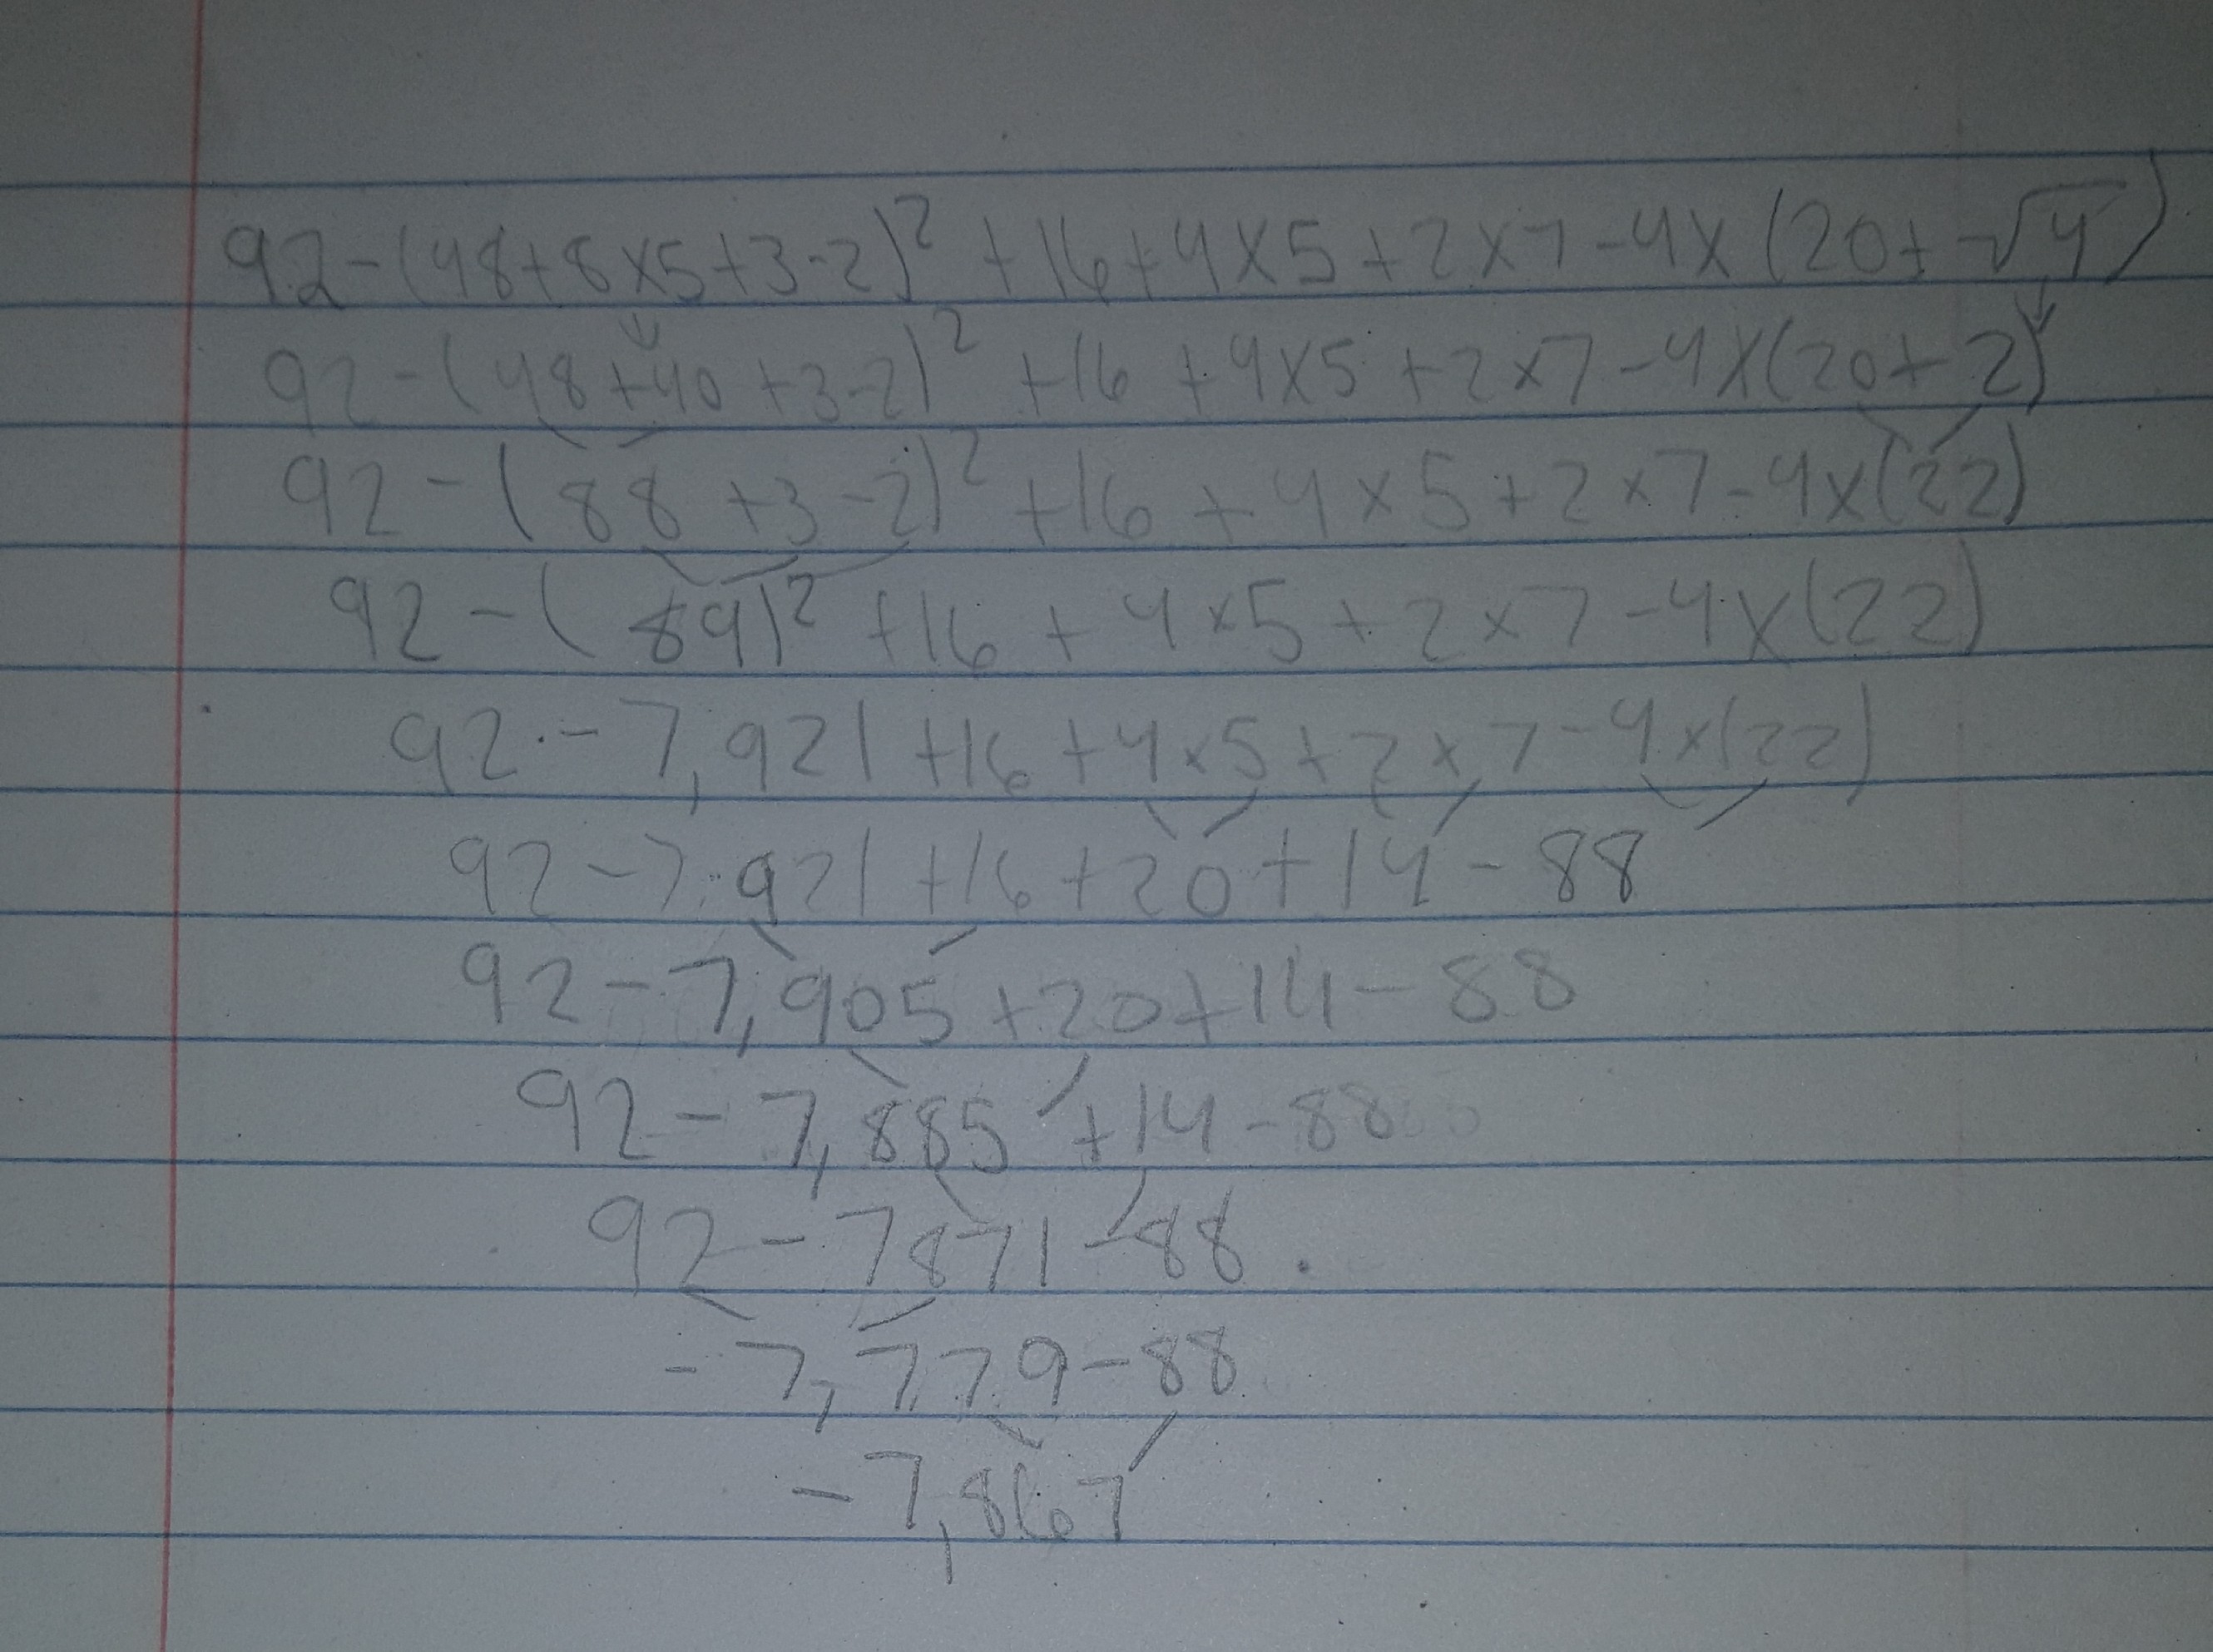 92-(48+8×5+3-2)² +16+4×5+2×7-4×(20+√4)
92-(48+40+3-2)² +16+4×5+2×7-4×(20+2)
92-(88+3-2)² +16+4×5+2×7-4×(22)
92-(89)² +16+4×5+2×7-4×(22)
92-7,921+16+4×5+2×7-4×(22)
92-7,921+16+20+14-88
92-7,905+20+14-88
92-7,885+14-88
92-7871-88
-7,779-88
-7,867